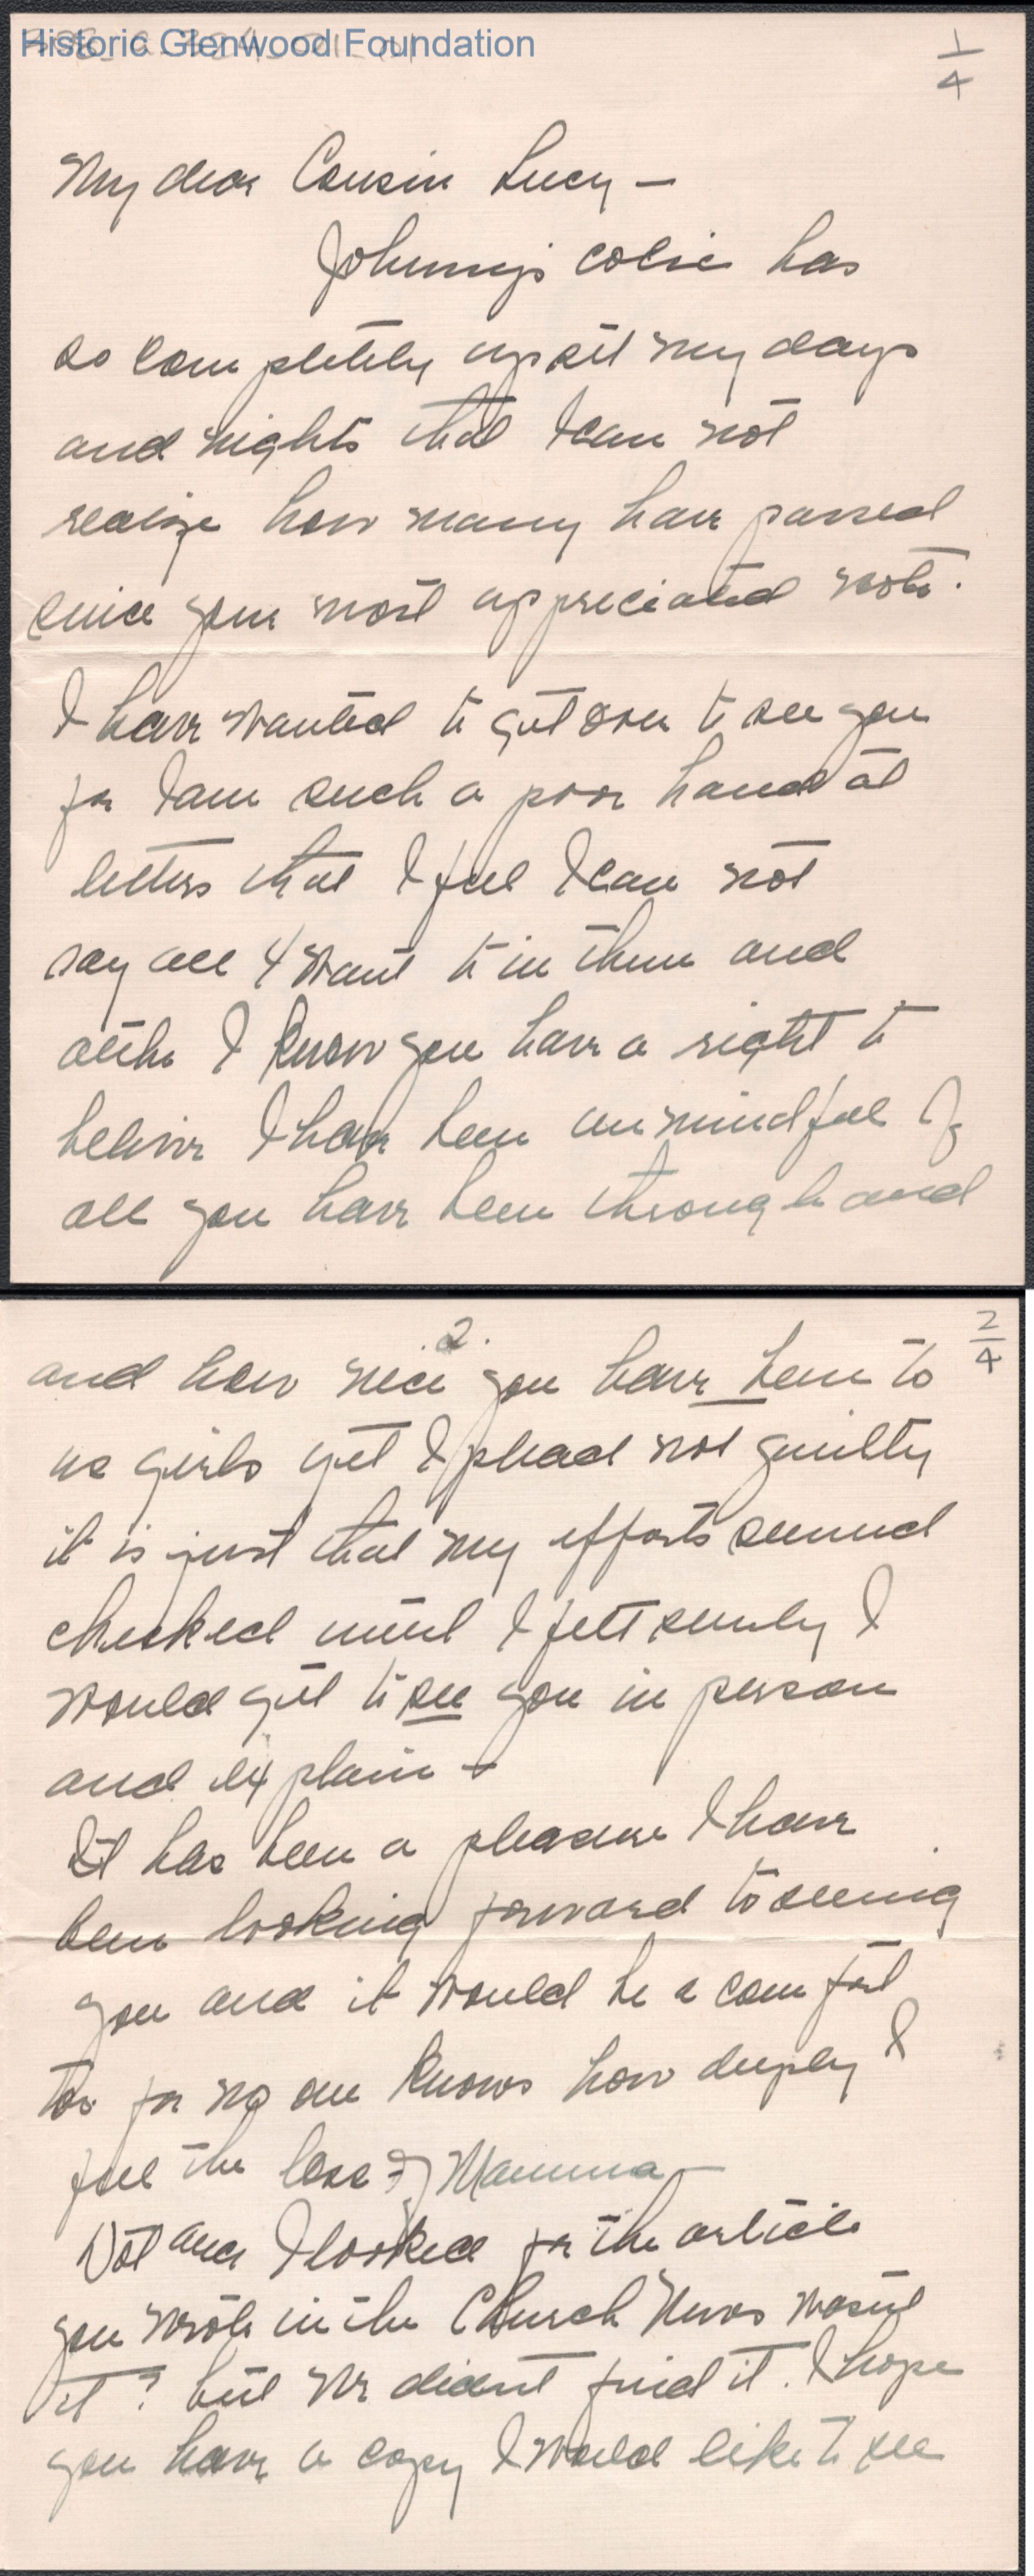 Historic Glenwood Foundation
1/4
My dear Cousin Lucy —
Johnny's colic has
so completely upset my days
and nights that I can not
realize how many have passed
since your most appreciated note.
I have wanted to get over to see you
for I am such a poor hand at
letters that I feel I can not
say all I want to in them and
altho I know you have a right to
believe I have been unmindful of
all you have been through and
2.
2/4
and how nice you have been to
us girls yet I plead not guilty
it is just that my efforts seemed
checked until I felt surely I
would get to see you in person
and explain —
It has been a pleasure I have
been looking forward to seeing
you and it would be a comfort
too for no one knows how deeply I
feel the loss of Mamma —
Dot and I looked for the article
you wrote in the Church News wasn't
it? but we didnt find it. I hope
you have a copy I would like to see